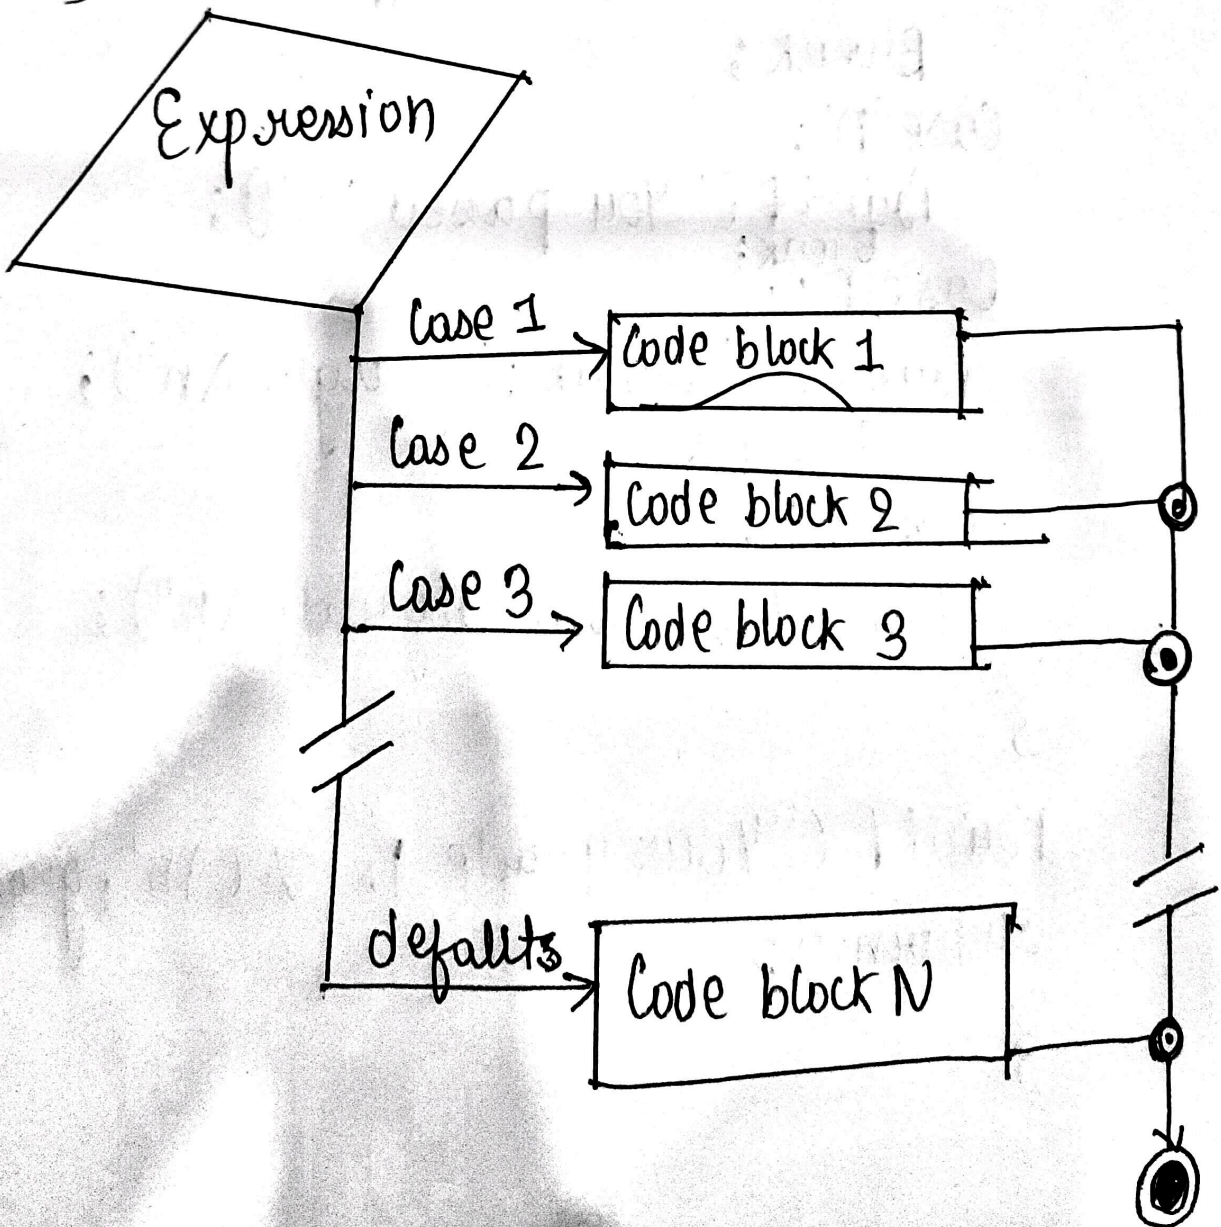 Expression
Case 1
Code block 1
Case 2
Code block 2
Case 3
Code block 3
defaults
Code block N